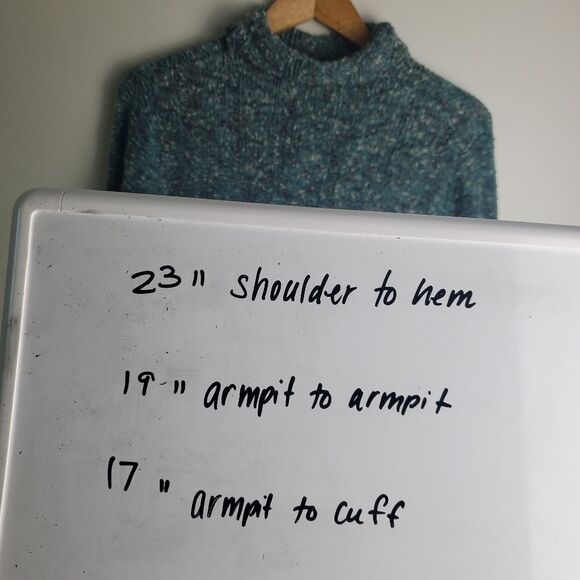 23" shoulder to hem
19" armpit to armpit
17" armpit to cuff